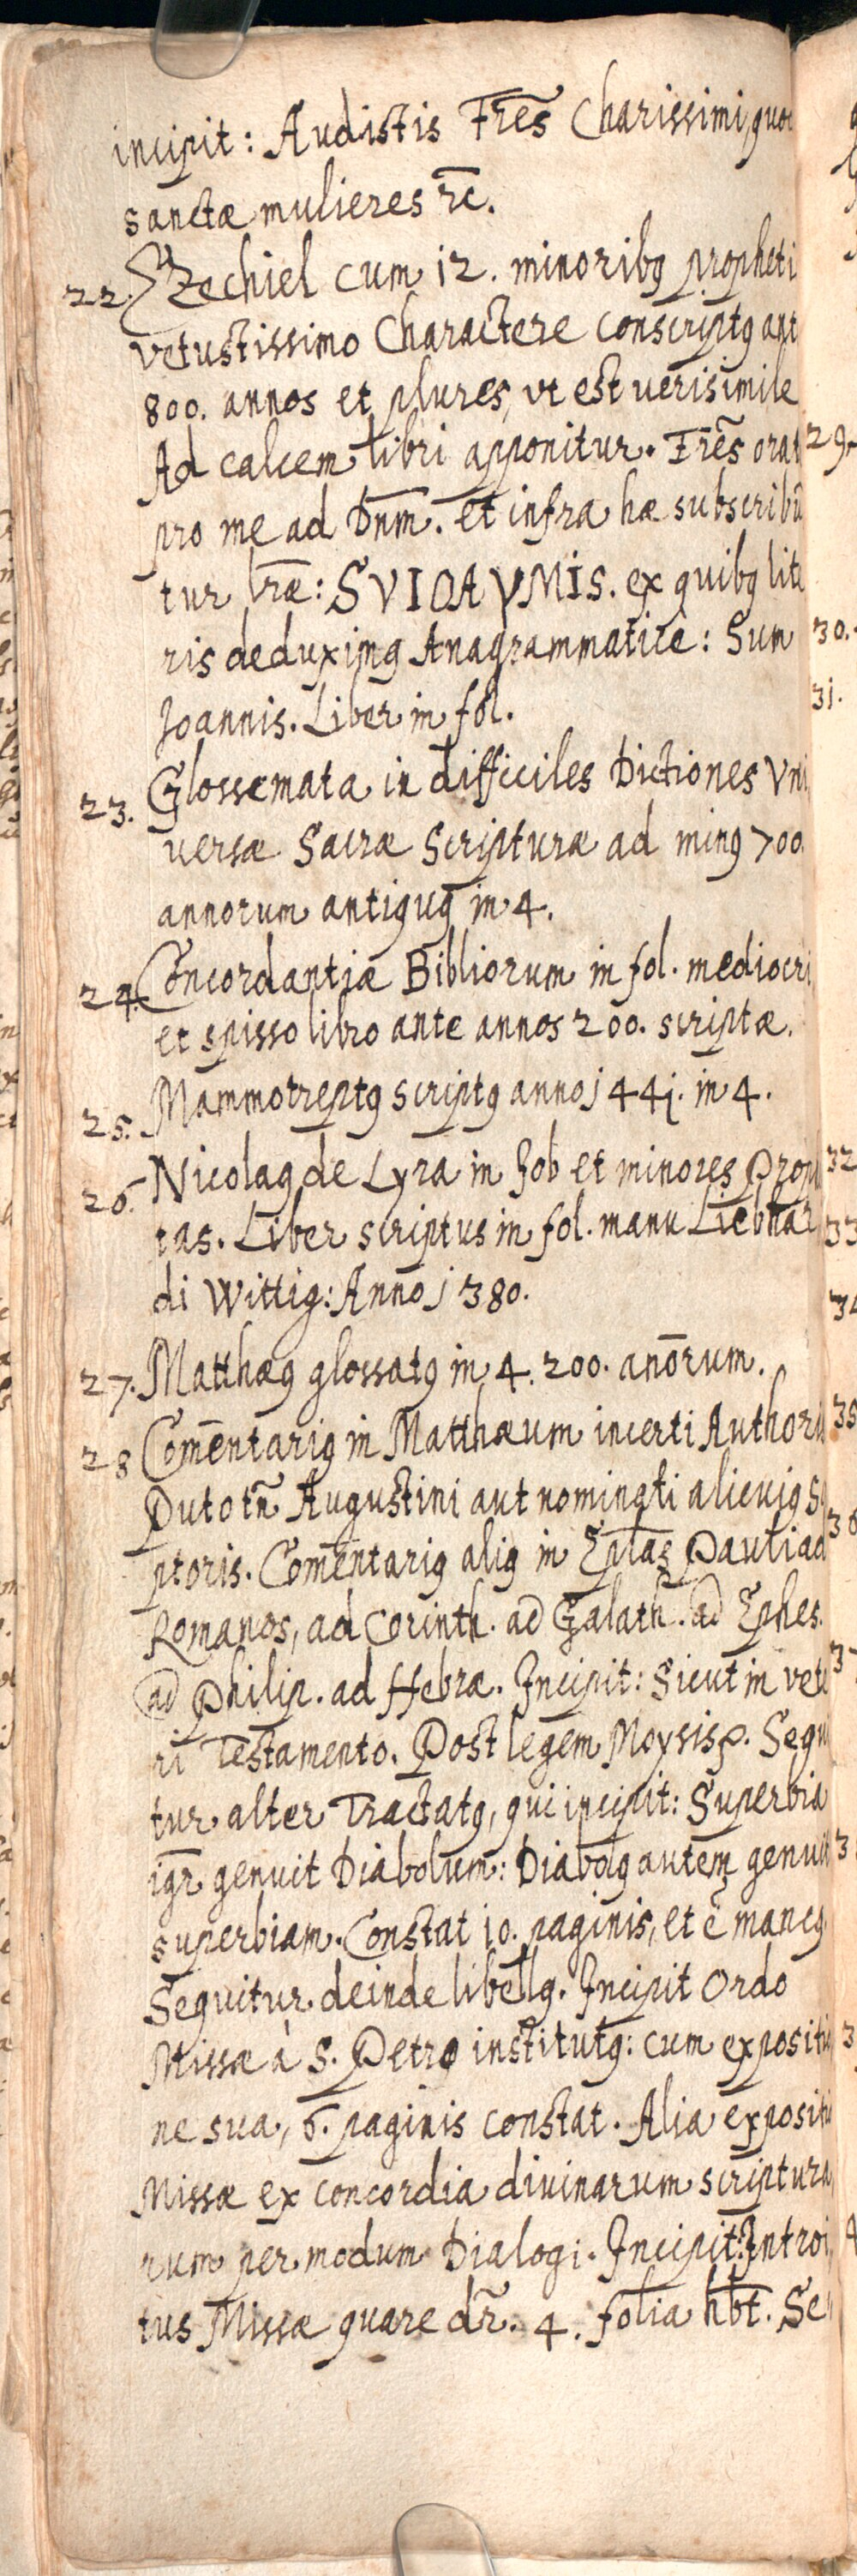 incipit: Audistis Frẽs Charissimi, quo
sanctæ mulieres &c̃.
22. Ezechiel cum 12. minoribꝰ propheti
vetustissimo Charactere conscriptꝰ ant
800. annos et plures, vt est uerisimile
Ad calcem libri apponitur. Frẽs orat
pro me ad Dñm. et infra hæ subscribũ
tur lr̃æ: SVIOAVMIS. ex quibꝰ lite
ris deduximꝰ Anagrammaticè: Sum
Joannis. Liber in fol.
23. Glossemata in difficiles Dictiones Vni
uersæ Sacræ Scripturæ ad minꝰ 700.
annorum antiquꝰ in 4.
24. Concordantiæ Bibliorum in fol. mediocri
et spisso libro ante annos 200. scriptæ.
25. Mammotreptꝰ scriptꝰ anno 1441. in 4.
26. Nicolaꝰ de Lyra in Job et minores Prop
tas. Liber scriptus in fol. manu Liebhar
di Wittig: Anno 1380.
27. Matthæꝰ glossatꝰ in 4. 200. anõrum.
28 Comẽntariꝰ in Matthæum incerti Author
Puto tñ Augustini aut nominati alicuiꝰ S
ptoris. Comẽntariꝰ aliꝰ in Epl̃as Pauli ad
Romanos, ad Corinth. ad Galath. ad Ephes.
ad Philip. ad Hebræ. Incipit: Sicut in vete
ri Testamento. Post legem Moysis &. Sequi
tur alter Tractatꝰ, qui incipit: Superbia
igr̃ genuit Diabolum: Diabolꝰ autem genuit
superbiam. Constat 10. paginis, et ẽ mancꝰ
Sequitur deinde libellꝰ. Incipit Ordo
Missæ à S. Petro institutꝰ: cum expositio
ne sua, 6. paginis constat. Alia expositi
Missæ ex concordia diuinarum scriptura
rum per modum Dialogi. Incipit: Introi
tus Missæ quare dr̃. 4. folia hbt̃. Se
29.
30.
31.
32
33
35
36